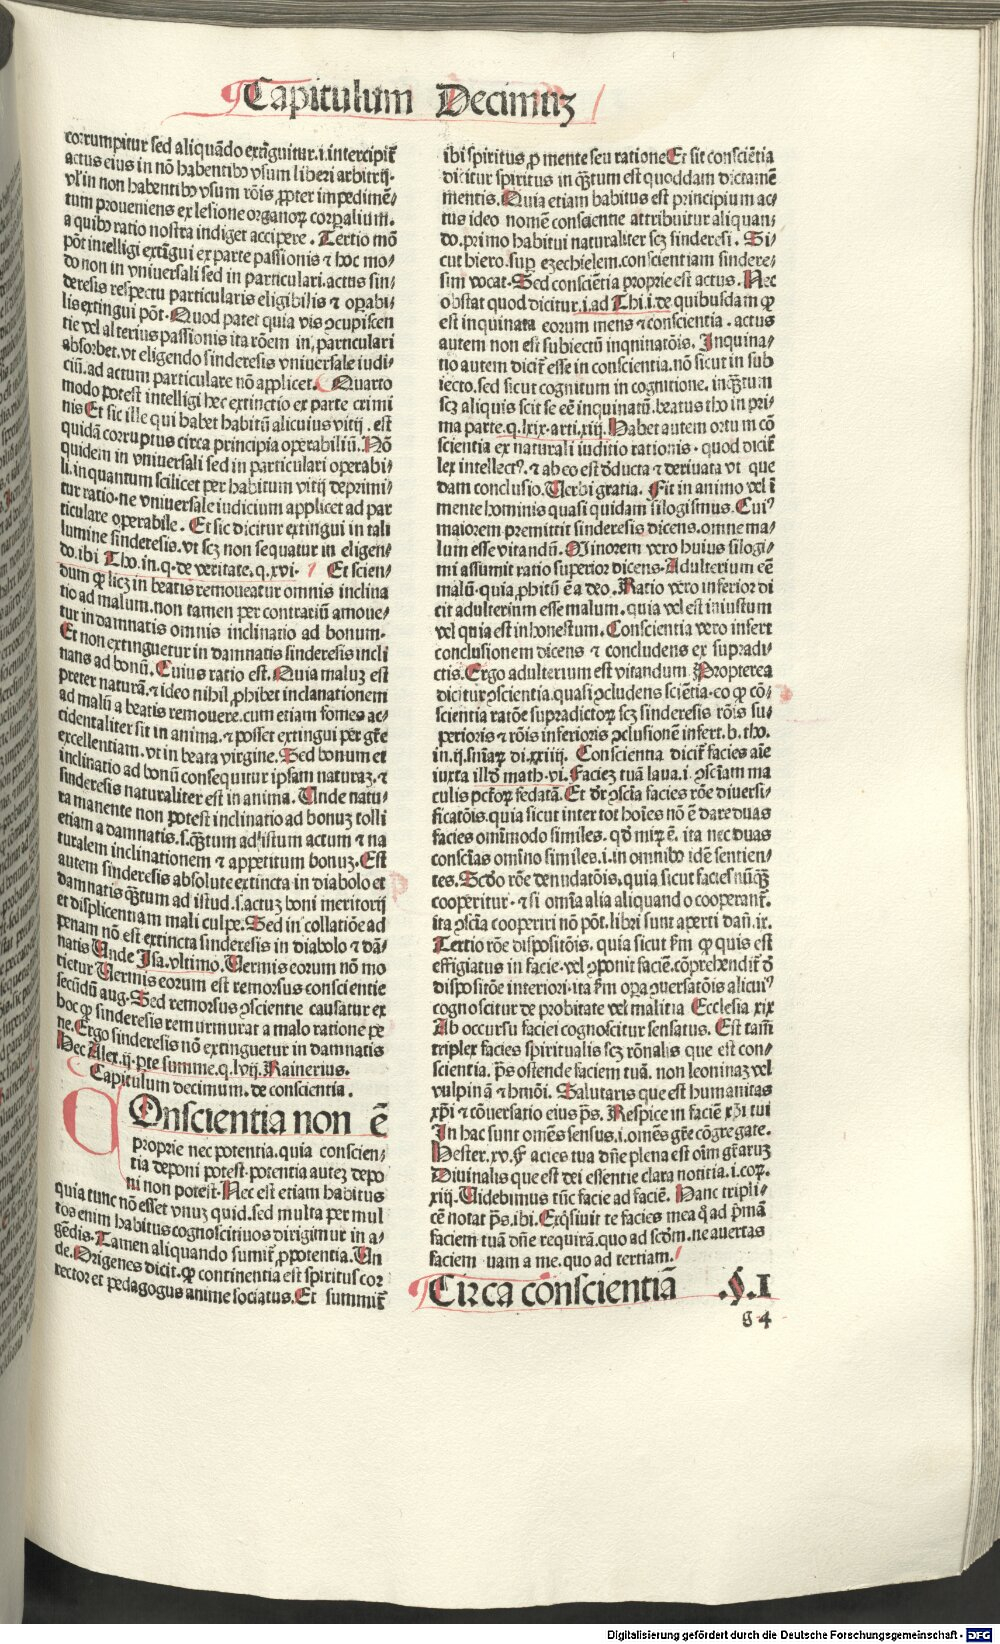 Capitulum Decimuꝫ
corrumpitur sed aliquādo extīguitur.i.intercipit᷑
actus eius in nō habentibꝰ vsum liberi arbitrij.
vl' in non habentibꝰ vsum rōis ꝓpter impedimē/
tum proueniens ex lesione organoꝝ corꝑalium.
a quibꝰ ratio nostra indiget accipere. Tertio mō
pōt intelligi extīgui ex parte passionis ⁊ hoc mo/
do non in vniuersali sed in particulari.actus sin/
deresis respectu particularis eligibilis ⁊ oꝑabi/
lis extingui pōt. Quod patet quia vis ꝯcupiscen
tie vel alterius passionis ita rōem in particulari
absorbet.vt eligendo sinderesis vniuersale iudi/
ciū.ad actum particulare nō applicet. Quarto
modo potest intelligi hec extinctio ex parte crimi
nis Et sic ille qui habet habitū alicuius vitij. est
quidā corruptus circa principia operabiliū. Nō
quidem in vniuersali sed in particulari operabi/
li.in quantum scilicet per habitum vitij deprimi/
tur ratio.ne vniuersale iudicium applicet ad par
ticulare operabile. Et sic dicitur extingui in tali
lumine sinderesis.vt scꝫ non sequatur in eligen/
do.ibi Tho.in.q.de veritate.q.xvi. Et scien/
dum ꝙ licꝫ in beatis remoueatur omnis inclina
tio ad malum.non tamen per contrariū amoue/
tur in damnatis omnis inclinatio ad bonum.
Et non extinguetur in damnatis sinderesis incli
nans ad bonū. Cuius ratio est. Quia maluꝫ est
preter naturā.⁊ ideo nihil ꝓhibet inclanationem
ad malū a beatis remouere.cum etiam fomes ac/
cidentaliter sit in anima.⁊ posset extingui per gr̄e
excellentiam.vt in beata virgine. Sed bonum et
inclinatio ad bonū consequitur ipsam naturaꝫ.⁊
sinderesis naturaliter est in anima. Unde natu/
ra manente non potest inclinatio ad bonuꝫ tolli
etiam a damnatis.s.q̄tum ad istum actum ⁊ na
turalem inclinationem ⁊ appetitum bonuꝫ. Est
autem sinderesis absolute extincta in diabolo et
damnatis q̄tum ad istud.s.actuꝫ boni meritorij
et displicentiam mali culpe. Sed in collatiōe ad
penam nō est extincta sinderesis in diabolo ⁊ dā/
natis Unde Isa.vltimo. Uermis eorum nō mo
rietur Uermis eorum est remorsus conscientie
secūdū aug. Sed remorsus ꝯscientie causatur ex
hoc ꝙ sinderesis remurmurat a malo ratione pe
ne. Ergo sinderesis nō extinguetur in damnatis
Hec Alex.ij.pte summe.q.lvij. Rainerius.
Capitulum decimum.de conscientia.
COnscientia non ē
proprie nec potentia.quia conscien/
tia deponi potest.potentia auteꝫ depo
ni non potest. Nec est etiam habitus
quia tunc nō esset vnuꝫ quid.sed multa per mul
tos enim habitus cognoscitiuos dirigimur in a/
gēdis. Tamen aliquando sumit᷑ ꝓ potentia. Un
de. Origenes dicit. ꝙ continentia est spiritus cor
rector et pedagogus anime sociatus. Et summit᷑
ibi spiritus ꝓ mente seu ratione Et sit conscīētia
dicitur spiritus in q̄tum est quoddam dictamē
mentis. Quia etiam habitus est principium ac/
tus ideo nomē conscientie attribuitur aliquan/
do.primo habitui naturaliter scꝫ sinderesi. Si/
cut hiero.suꝑ ezechielem.conscientiam sindere/
sim vocat. Sed conscīētia proprie est actus. Nec
obstat quod dicitur.i.ad Thi.i.de quibusdam ꝙ
est inquinata eorum mens ⁊ conscientia. actus
autem non est subiectū inqninatōis. Inquina/
tio autem dicit᷑ esse in conscientia.nō sicut in sub
iecto.sed sicut cognitum in cognitione.inq̄tum
scꝫ aliquis scit se eē inquinatū.beatus tho in pri/
ma parte.q.lxix.arti.xiij. Habet autem ortum cō
scientia ex naturali iuditio rationis. quod dicit᷑
lex intellectꝰ.⁊ ab eo est dd̄ucta ⁊ deriuata vt que
dam conclusio. Uerbi gratia. Fit in animo vel ī
mente hominis quasi quidam silogismus. Cuiꝰ
maiorem premittit sinderesis dicens.omne ma/
lum esse vitandū. Minorem vero huius silogi/
mi assumit ratio superior dicens. Adulterium eē
malū.quia ꝓhibitū ē a deo. Ratio vero inferior di
cit adulterium esse malum.quia vel est iniustum
vel quia est inhonestum. Conscientia vero infert
conclusionem dicens ⁊ concludens ex supradi/
ctis. Ergo adulterium est vitandum Propterea
dicitur ꝯscientia.quasi ꝯcludens scīētia.eo ꝙ cō/
scientia ratōe supradictoꝝ scꝫ sinderesis rōis su/
perioris ⁊ rōis inferioris ꝯclusionē infert.b.tho.
in.ij.sn̄iaꝝ di.xxiiij. Conscientia dicit᷑ facies aīe
iuxta illd̄ math.vi. Facieꝫ tuā laua.i.ꝯsciam ma
culis pct̄oꝝ fedatā. Et dr̄ ꝯscīa facies rōe diuersi/
ficatōis.quia sicut inter tot hoīes nō ē dare duas
facies omīmodo similes. qd̄ miꝝ ē. ita nec duas
conscīas omīno similes.i.in omnibꝰ idē sentien/
tes. Scd̄o rōe denudatōis.quia sicut facies nūq̄
cooperitur.⁊ si omīa alia aliquando cooperant᷑.
ita ꝯscīa cooperiri nō pōt.libri sunt aperti dan̄.ix.
Tertio rōe dispositōis.quia sicut fm̄ ꝙ quis est
effigiatus in facie.vel ꝯponit faciē.cōprehendit᷑ d̄
dispositōe interiori.ita fm̄ oꝑa ꝯuersatōis alicuiꝰ
cognoscitur de probitate vel malitia Ecclesia xix
Ab occursu faciei cognoscitur sensatus. Est tam̄
triplex facies spiritualis scꝫ rōnalis que est con/
scientia.ps̄ ostende faciem tuā.non leoninaꝫ vel
vulpinā ⁊ hmōi. Salutaris que est humanitas
xp̄i ⁊ cōuersatio eius ps̄. Respice in faciē xp̄i tui
In hac sunt omēs sensus.i.omēs gr̄e cōgregate.
Hester.xv. Facies tua dn̄e plena est oīm gr̄aruꝫ
Diuinalis que est dei essentie clara notitia.i.coꝝ.
xiij. Uidebimus tūc facie ad faciē. Hanc tripli/
cē notat ps̄.ibi. Exq̄siuit te facies mea q̄ ad pͥmā
faciem tuā dn̄e requirā.quo ad scd̄m.ne auertas
faciem uam a me.quo ad tertiam.
CIrca conscientiā .§.I
g 4
Digitalisierung gefördert durch die Deutsche Forschungsgemeinschaft - DFG